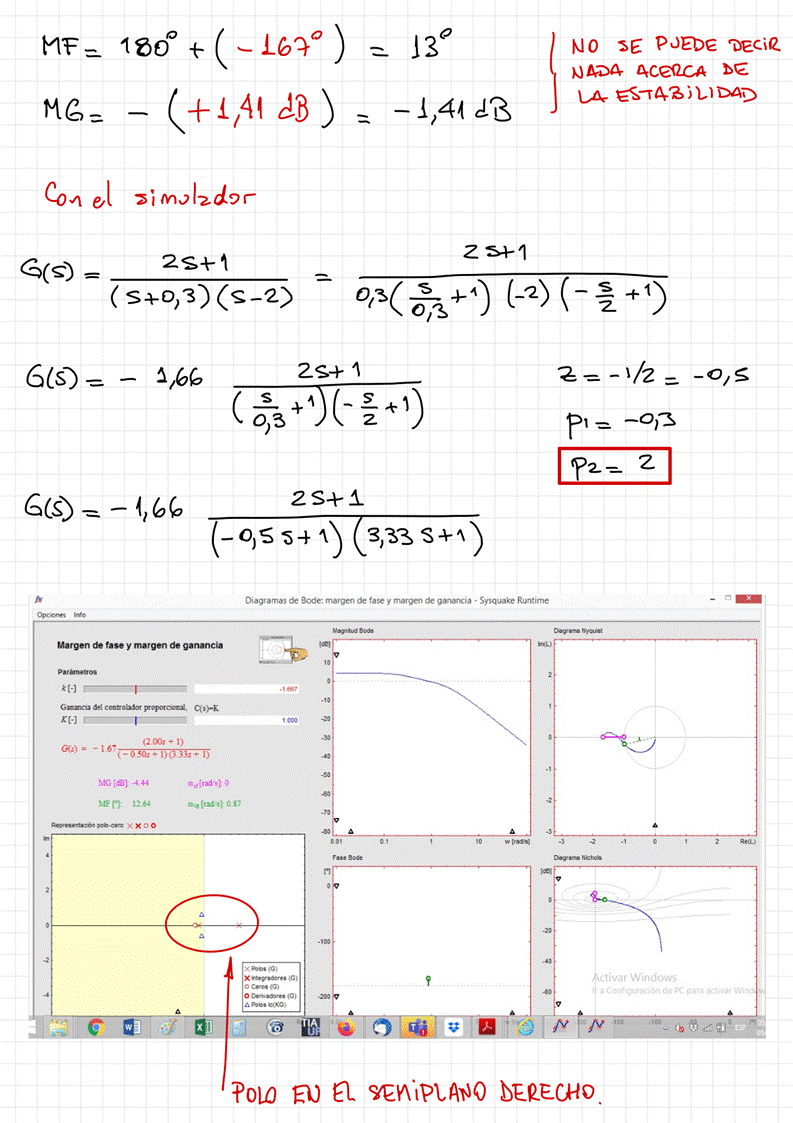 MF = 180° + (-167°) = 13°
NO SE PUEDE DECIR
NADA ACERCA DE
LA ESTABILIDAD
MG = - (+1,41 dB) = -1,41 dB
Con el simulador
G(s) = 2s+1 / (s+0,3)(s-2) = 2s+1 / 0,3(s/0,3 +1)(-2)(-s/2 +1)
G(s) = - 1,66 2s+1 / (s/0,3 +1)(-s/2 +1)
z = -1/2 = -0,5
p1 = -0,3
p2 = 2
G(s) = -1,66 2s+1 / (-0,5 s+1)(3,33 s+1)
Diagramas de Bode: margen de fase y margen de ganancia - Sysquake Runtime
Opciones Info
Margen de fase y margen de ganancia
Parámetros
k [-] -1.667
Ganancia del controlador proporcional, C(s)=K
K [-] 1.000
G(s) = -1.67 (2.00s + 1) / (-0.50s + 1)(3.33s + 1)
MG [dB]: -4.44 [rad/s]: 0
MF [°]: 12.64 [rad/s]: 0.87
Representación polo-cero
Im
4
2
0
-2
-4
Polos (G)
Integradores (G)
Ceros (G)
Derivadores (G)
Polos lc(KG)
Magnitud Bode
[dB]
10
0
-10
-20
-30
-40
-50
-60
-70
-80
0.01 0.1 1 10 w [rad/s]
Diagrama Nyquist
Im(L)
2
1
0
-1
-2
-3
-3 -2 -1 0 1 2 Re(L)
Fase Bode
[°]
0
-100
-200
Diagrama Nichols
[dB]
0
-20
-40
-60
Activar Windows
Ir a Configuración de PC para activar Windows
POLO EN EL SEMIPLANO DERECHO.